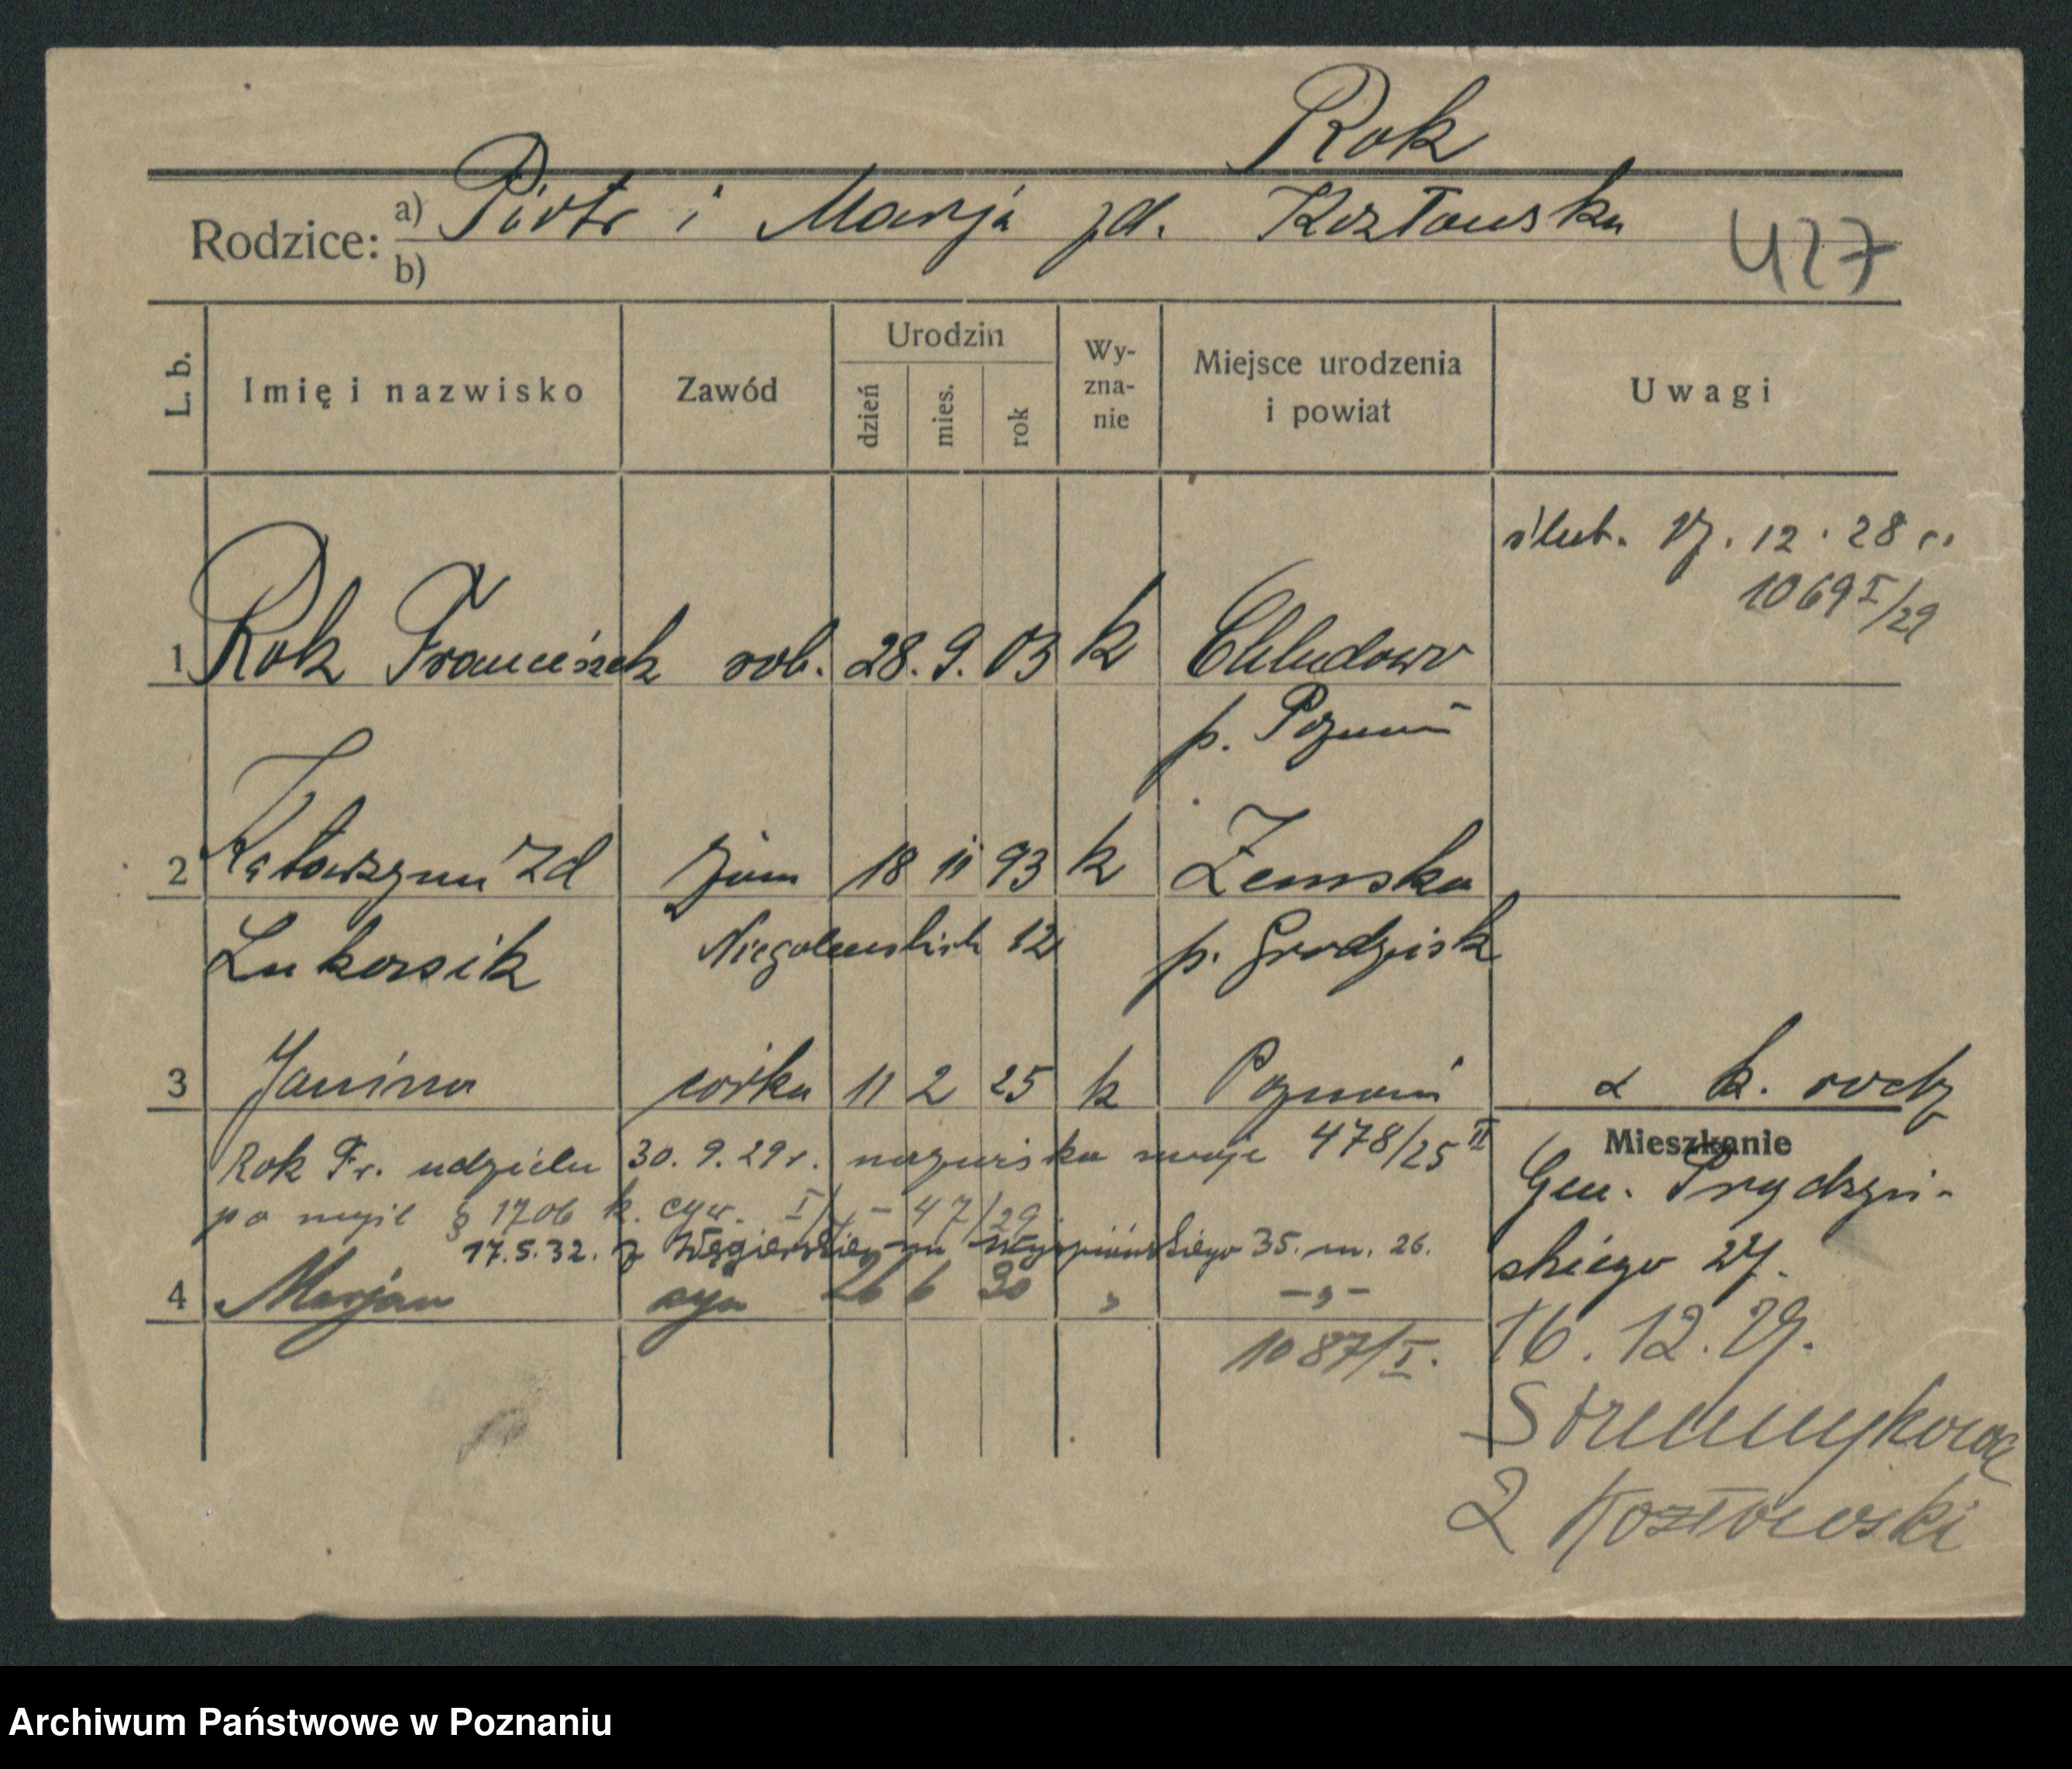 Rok
Rodzice: a) Piotr i Marja zd. Kozłowska
b)
427
L. b. Imię i nazwisko Zawód Urodzin dzień mies. rok Wy-zna-nie Miejsce urodzenia i powiat Uwagi
ślub. 17. 12. 28 r.
1069 I/29
1 Rok Franciszek rob. 28. 9. 03 k Chludowo
p. Poznań
2 Katarzyna zd żona 18 11 93 k Zemsko
Lukarsik Niegolewskich 12 p. Grodzisk
3 Janina córka 11 2 25 k Poznań k. rodz
Rok Fr. udzielu 30. 9. 29 r. nazwiska swoje 478/25 II
po myśl § 1706 k. cyw. I/ - 47/29
17.5.32. z Węgierskiej na Wyspiańskiego 35. m. 26.
4 Marjan syn 26 6 30 " -"-
1087/I.
Mieszkanie
Gen. Prądzyń-
skiego 27.
16. 12. 29.
Strumykowa
2 Kozłowski
Archiwum Państwowe w Poznaniu